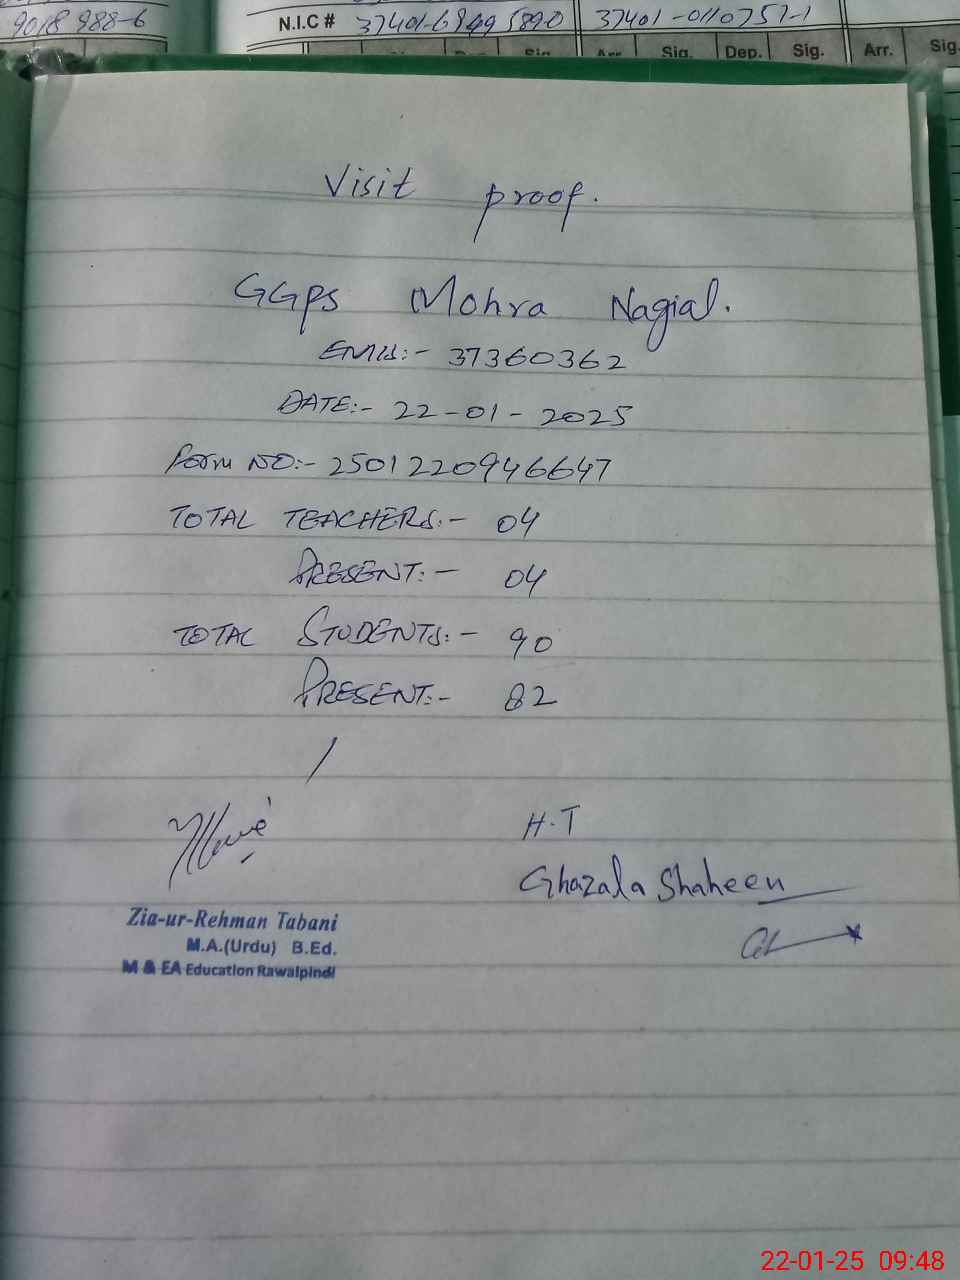 9018988-6
N.I.C # 37401-6949589-0 37401-0110757-1
Sig. Arr. Sig. Dep. Sig. Arr. Sig.
Visit proof.
GGPS Mohra Nagial.
EMIS:- 37360362
DATE:- 22-01-2025
Form NO:- 2501220946647
TOTAL TEACHERS:- 04
PRESENT:- 04
TOTAL STUDENTS:- 90
PRESENT:- 82
H.T
Ghazala Shaheen
Zia-ur-Rehman Tabani
M.A.(Urdu) B.Ed.
M & EA Education Rawalpindi
22-01-25 09:48